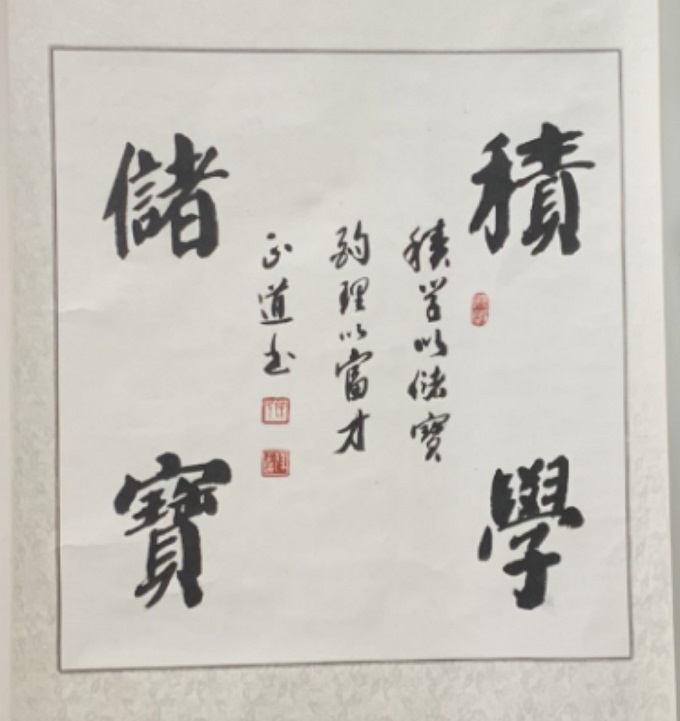 積學
積学以儲寶
酌理以富才
正道书
儲寶